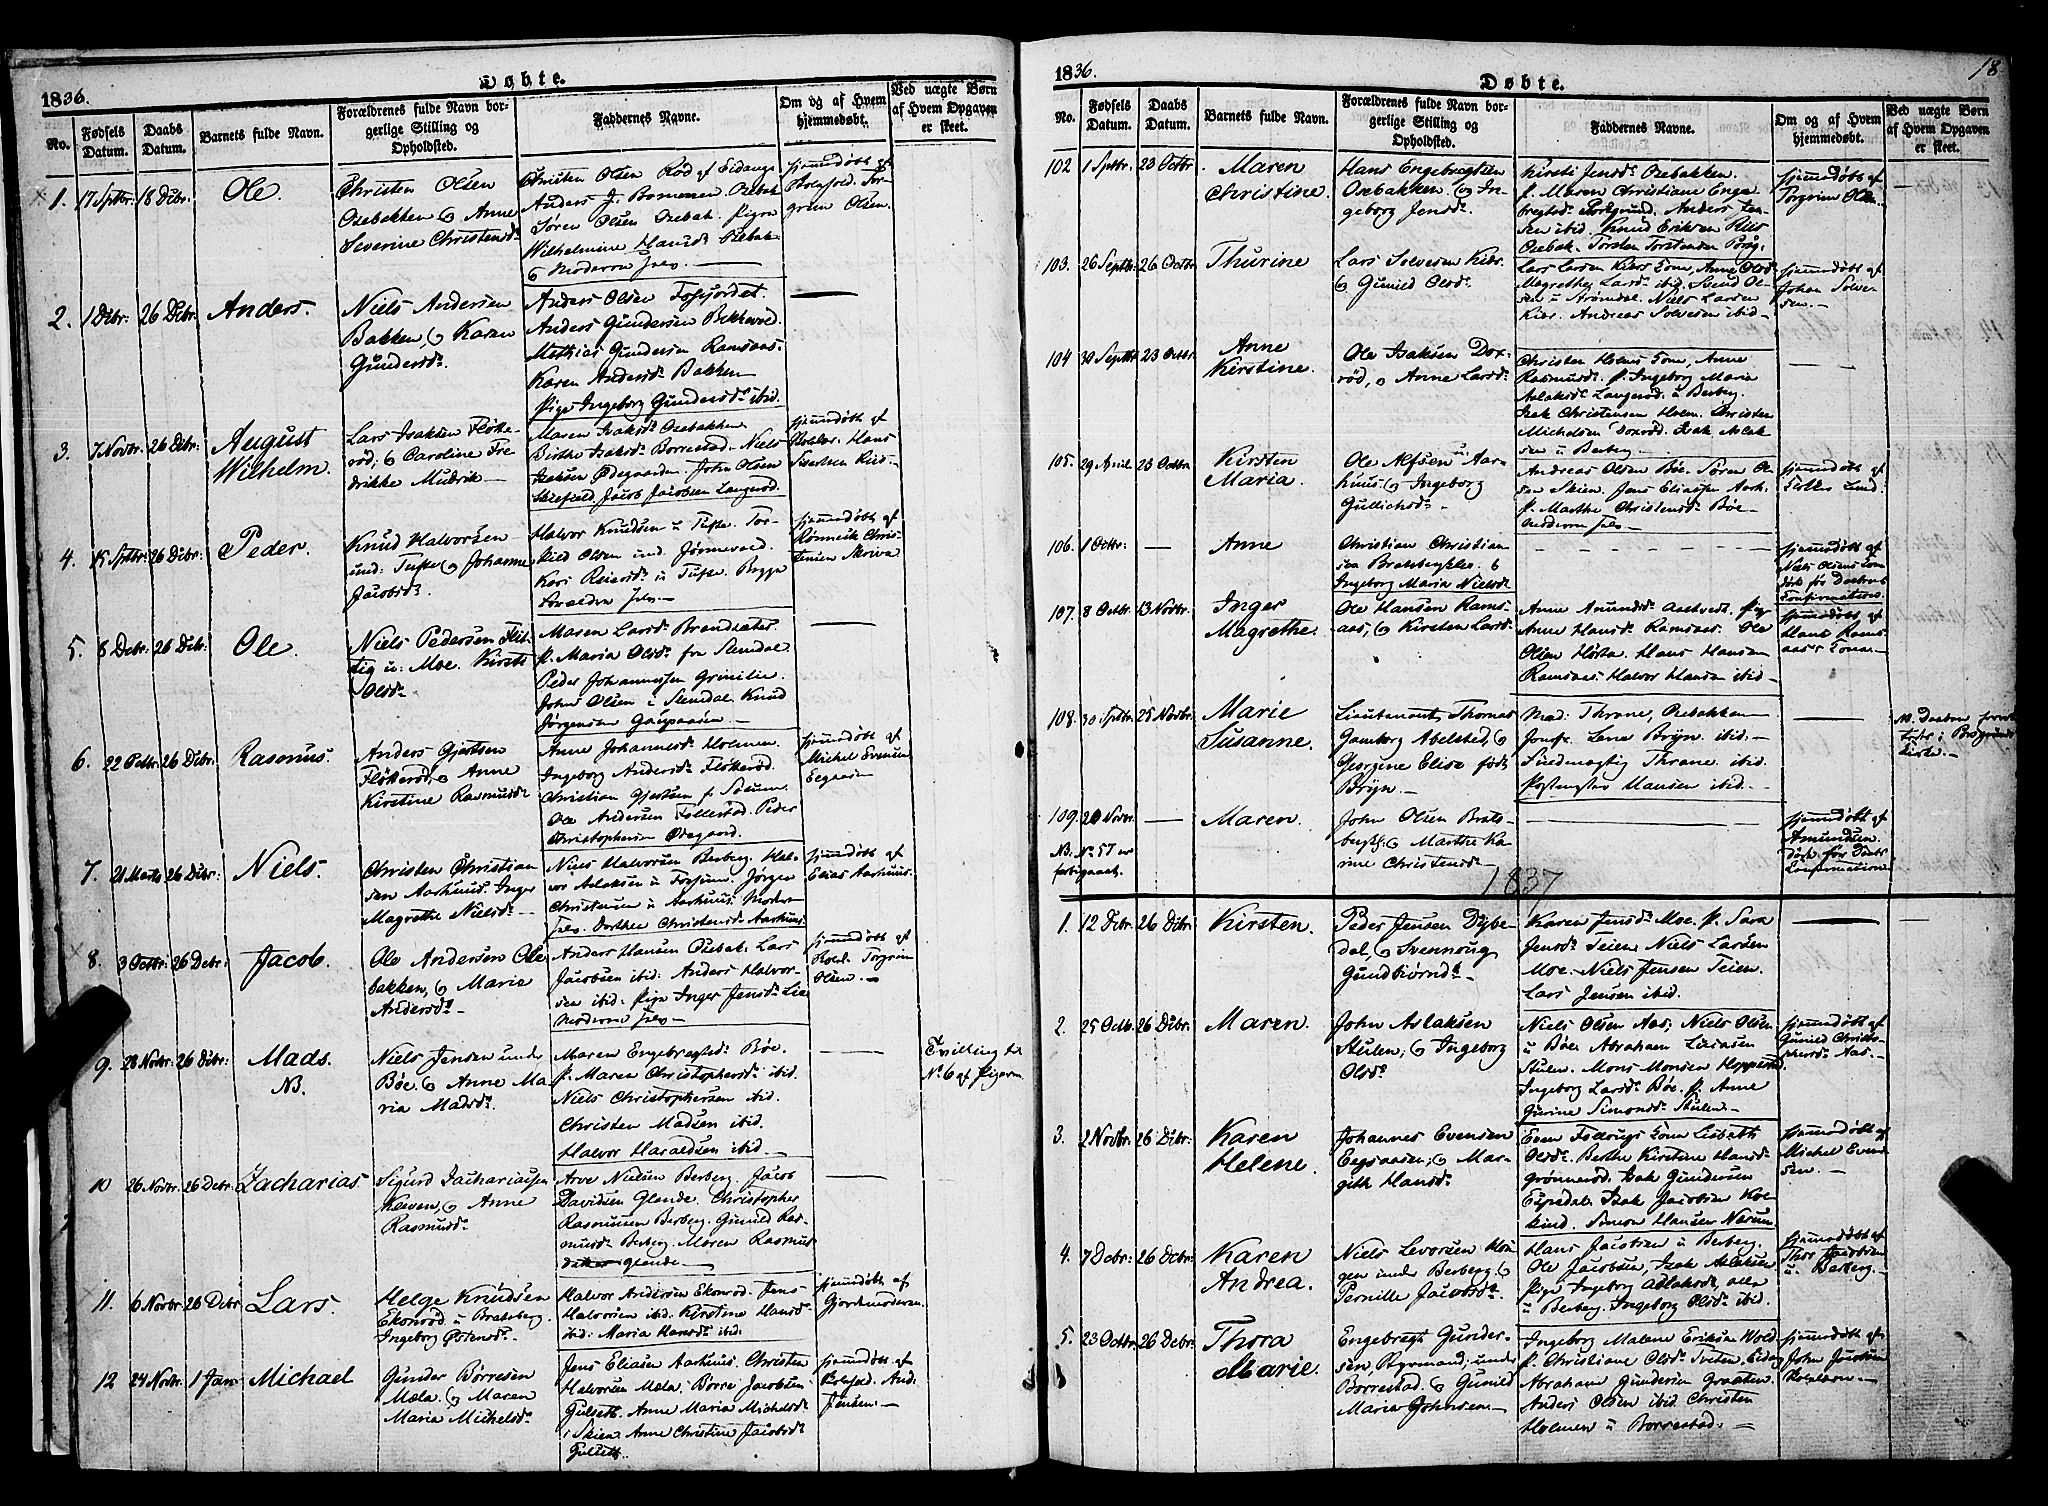 1836.
Døbte.
No.
Fødsels Datum.
Daabs Datum.
Barnets fulde Navn.
Forældrenes fulde Navn borgerlige Stilling og Opholdsted.
Faddernes Navne.
Om og af Hvem hjemmedøbt.
Ved uægte Børn af Hvem Opgaven er skeet.
1. 17 Sptbr: 18 Dcbr: Ole.
Christen Olsen
Osebakken & Anne
Severine Christensd.
Christen Olsen Röd af Eidanger
Anders J.
Sören Olsen Osebak. Pigen
Wilhelmine Hansd. Osebak
& Moderen selv.
hjemmedøbt af
grim Olsen.
2. 1 Dcbr: 26 Dcbr: Anders.
Niels Andersen
Bakken, & Karen
Gundersd.
Anders Olsen Fossjordet.
Anders Gundersen Bekkevold.
Mathias Gundersen Ramsaas.
Karen Andersd. Bakken
Pige Ingeborg Gundersd. ibid.
3. 7 Novbr: 26 Dcbr: August
Wilhelm.
Lars Isaksen Fløtte-
röd; & Caroline Fre-
drikke Mudrik
Maren Isaksd. Osebakken
Birthe Isaksd. Borrestad. Niels
Isaksen Ødegaarden. John Olsen
Jacob Jacobsen Langeröd.
hjemmedøbt af
Hans
4. 15 Sptbr: 26 Dcbr: Peder.
Knud Halvorsen
und: Tufte & Johanne
Jacobsd.
Halvor Knudsen u Tufte. Tor-
kild Olsen und. Jönnevald.
Kari Reiersd. u Tufte. Begge
Forældre selv.
hjemmedøbt af
Chris-
5. 8 Dcbr: 26 Dcbr: Ole.
Niels Pedersen Flit-
tig u: Moe. Kirsti
Olsd.
Maren Larsd. Brendsæter.
p. Maria Olsd. fra Slemdal
Peder Johannessen Grinilie.
John Olsen i Slemdal Knud
Jörgensen Gaupaasen.
6. 22 Octbr: 26 Dcbr: Rasmus.
Anders Gjertsen
Flötteröd, & Anne
Kirstine Rasmusd.
Anne Johannesd. Holmen.
Ingeborg Andersd. Flötteröd.
Christian Gjertsen p. Solum.
Ole Andersen Follestad. Peder
Christophersen Ødegaard.
hjemmedøbt af
Michel Evensen
7. 21 Marts 26 Dcbr: Niels.
Christen Christian-
sen Aarhuus. Inger
Magrethe Nielsd.
Niels Halvorsen Berberg. Hal-
vor Aslaksen u Fossum. Jörgen
Christensen u Aarhuus. Moder
selv. Dorthe Christensd. Aarhuus.
hjemmedøbt af
Elias Aarhuus.
8. 3 Octbr: 26 Dcbr: Jacob.
Ole Andersen Ose-
bakken, & Maria
Andersd.
Anders Hansen Osebak. Lars
Jacobsen ibid: Anders Halvor-
sen ibid: Pige Inger Jensd. Lie
Moderen selv
hjemmedøbt af
Torgrim
Olsen.
9. 28 Novbr: 26 Dcbr: Mads.
NB.
Niels Jensen under
Böe. & Anne Ma-
ria Madsd.
Maren Engebrægtsd. Böe.
p. Maren Christophersd. ibid.
Niels Christophersen ibid.
Christen Madsen ibid.
Halvor Haraldsen ibid.
Tvilling til
No. 6 af Pigerne
10 26 Novbr. 26 Dcbr. Zacharias
Sigurd Zachariassen
Kleven, & Anne
Rasmusd.
Arve Nielsen Berberg. Jacob
Davidsen Glende. Christopher
Rasmussen Berberg. Gunild Ras-
musd. Berberg. Maren Rasmus-
datter Glende
11. 6 Novbr 26 Dcbr Lars.
Helge Knudsen
Ekonröd u Bratsberg.
Ingeborg Östensd.
Halvor Andersen Ekonröd. Jens
Halvorsen ibid. Kirstine Hansd.
ibid. Maria Hansd. ibid.
hjemmedøbt af
Gjordemoderen.
12 24 Novbr 1 Jan Michael
Gunder Börresen
Mæla. & Maren
Maria Michelsd.
Jens Eliasen Aarhuus. Christen
Halvorsen Mæla. Börre Jacobsen
Gulseth. Anne Maria Michelsd.
i Skien. Anne Christine Jacobsd.
Gulseth.
hjemmedøbt af
And.
Jensen.
1836.
Døbte.
18
No.
Fødsels Datum.
Daabs Datum.
Barnets fulde Navn.
Forældrenes fulde Navn borgerlige Stilling og Opholdsted.
Faddernes Navne.
Om og af Hvem hjemmedøbt.
Ved uægte Børn af Hvem Opgaven er skeet.
102 1 Sptbr. 23 Octbr. Maren
Christine.
Hans Engebregtsen
Osebakken. & In-
geborg Jensd.
Kirsti Jensd. Osebakken.
p. Maren Christiane Enge-
bregtsd. Porsgrund. Anders Jen-
sen ibid. Knud Eriksen Riis
Osebak. Torsten Torstensen Porsg.
hjemmedøbt af
Torgrim Olsen.
103. 26 Septbr: 26 Octbr Thurine
Lars Solvesen Kiær.
& Gunild Olsd.
Lars Larsen Kiærs Kone, Anne Olsd.
Magrethe Larsd. ibid. Svend Ol-
sen u Strömdal. Niels Larsen
Kiær. Andreas Solvesen ibid.
hjemmedøbt af
Johan Solve-
sen.
104 30 Septbr 23 Octbr Anne
Kirstine.
Ole Isaksen Dox-
röd, & Anne Larsd.
Christen Holms Kone, Anne
Rasmusd. p. Ingeborg Maria
Aslaksd. Langeröd u Berberg.
Isak Christensen Holm. Christen
Michelsen Doxröd. Isak Aslak-
sen u Berberg.
105. 29 April 23 Octbr Kirsten
Maria.
Ole Alfsen u: Aar-
huus. & Ingeborg
Gullichsd.
Andreas Olsen Böe. Sören Ol-
sen Skien. Jens Eliasen Aarh.
p. Marthe Christensd. Böe
Moderen selv
hjemmedøbt af
Lund.
106. 1 Octbr: — Anne
Christian Christian-
sen Bratsbergklev. &
Ingeborg Maria Nielsd.
hjemmedøbt af
Niels Olsens Kone
död før Daabens
Confirmation.
107. 8 Octbr 13 Novbr. Inger
Magrethe.
Ole Hansen Rams-
aas, & Kirsten Larsd.
Anne Amundsd. Aastvedt. Pige
Anne Hansd. Ramsaas. Ole
Olsen Hösta. Hans Hansen
Ramsaas. Halvor Hansen ibid.
hjemmedøbt af
Hans Rams-
aas's Kone.
108. 30 Sptbr 25 Novbr. Marie
Susanne.
Lieutenant Thomas
Gamborg Abelsted, &
Georgine Elisa född
Bryn.
Mad: Thrane, Osebakken
Jomfr. Lena Bryn. ibid.
Fuldmægtig Thrane. ibid.
Postmester Hansen ibid.
NB. Daaben forret-
tet i Porsgrunds
Kirke.
109. 20 Novbr. — Maren.
John Olsen Brats-
bergkl. & Marthe Ka-
rine Christensd.
hjemmedøbt af
Amundsen.
död før Daabs
Confirmation
NB. No. 57 er
forbigaaet.
1837
1. 12 Dcbr. 26 Dcbr: Kirsten.
Peder Jensen Dybe-
dal, & Svennoug
Gundbiörnd.
Karen Jensd. Moe. p. Sara
Jensd. Teien. Niels Larsen
Moe. Niels Jensen Teien.
Lars Jensen ibid.
2. 25 Octb. 26 Dcbr: Maren.
John Aslaksen
Stulen; & Ingeborg
Olsd.
Niels Olsen Aas; Niels Olsen
u Böe. Abraham
Stulen. Mons Monsen Hoppestad
Ingeborg Larsd. Böe. p. Anne
Gurine Simonsd. Stulen.
hjemmedøbt af
Gunild Christo-
phersd. Aas.
3. 2 Novbr. 26 Dcbr: Karen
Helene.
Johannes Evensen
& Mar-
gith Hansd.
Even Kone Lisbeth
Olsd. Berthe Kirstine Hansd.
Grönneröd. Isak Gundersen
Espedal. Isak Jacobsen
Simon Hansen
hjemmedøbt af
Michel Even-
sen.
4. 7 Dcbr: 26 Dcbr: Karen
Andrea.
Niels Levorsen
under Berberg &
Pernille Jacobsd.
Hans Jacobsen u Berberg.
Ole Jacobsen, Isak Aslaksen
Pige Ingeborg Aslaksd., alle
u Berberg. Ingeborg Olsd. ibid.
hjemmedøbt af
Thor Jacobsen
u. Berberg.
5. 23 Octbr: 26 Dcbr: Thora
Marie.
Engebregt Gunder-
sen, Ryemand, under
Borrestad. & Gunild
Maria Johnsen
Ingeborg Malene Eriksen Wold
p. Christiane Olsd. Tveten, Eidang.
Abraham Gundersen Graaten.
Anders Olsen ibid. Christen
Holmen u Borrestad.
hjemmedøbt af
John Jacobsen